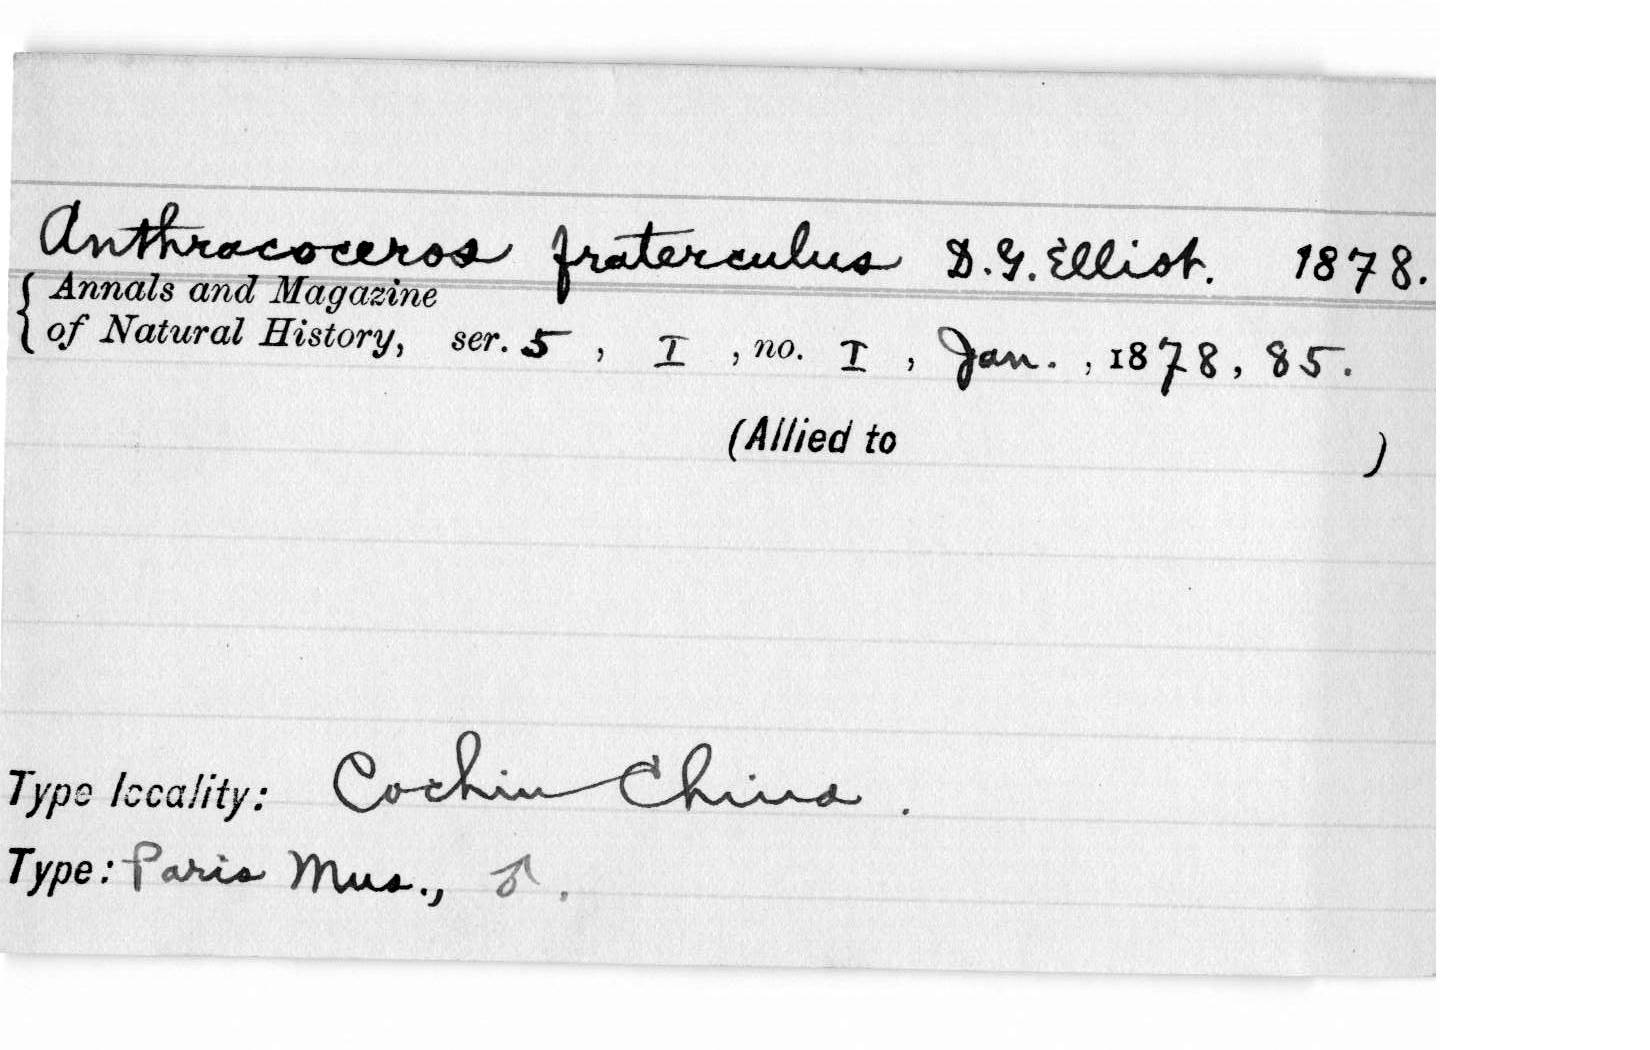 Anthracoceros fraterculus D.G. Elliot. 1878.
{ Annals and Magazine
of Natural History, ser. 5, I, no. I, Jan., 1878, 85.
(Allied to )
Type locality: Cochin China.
Type: Paris Mus., ♂.